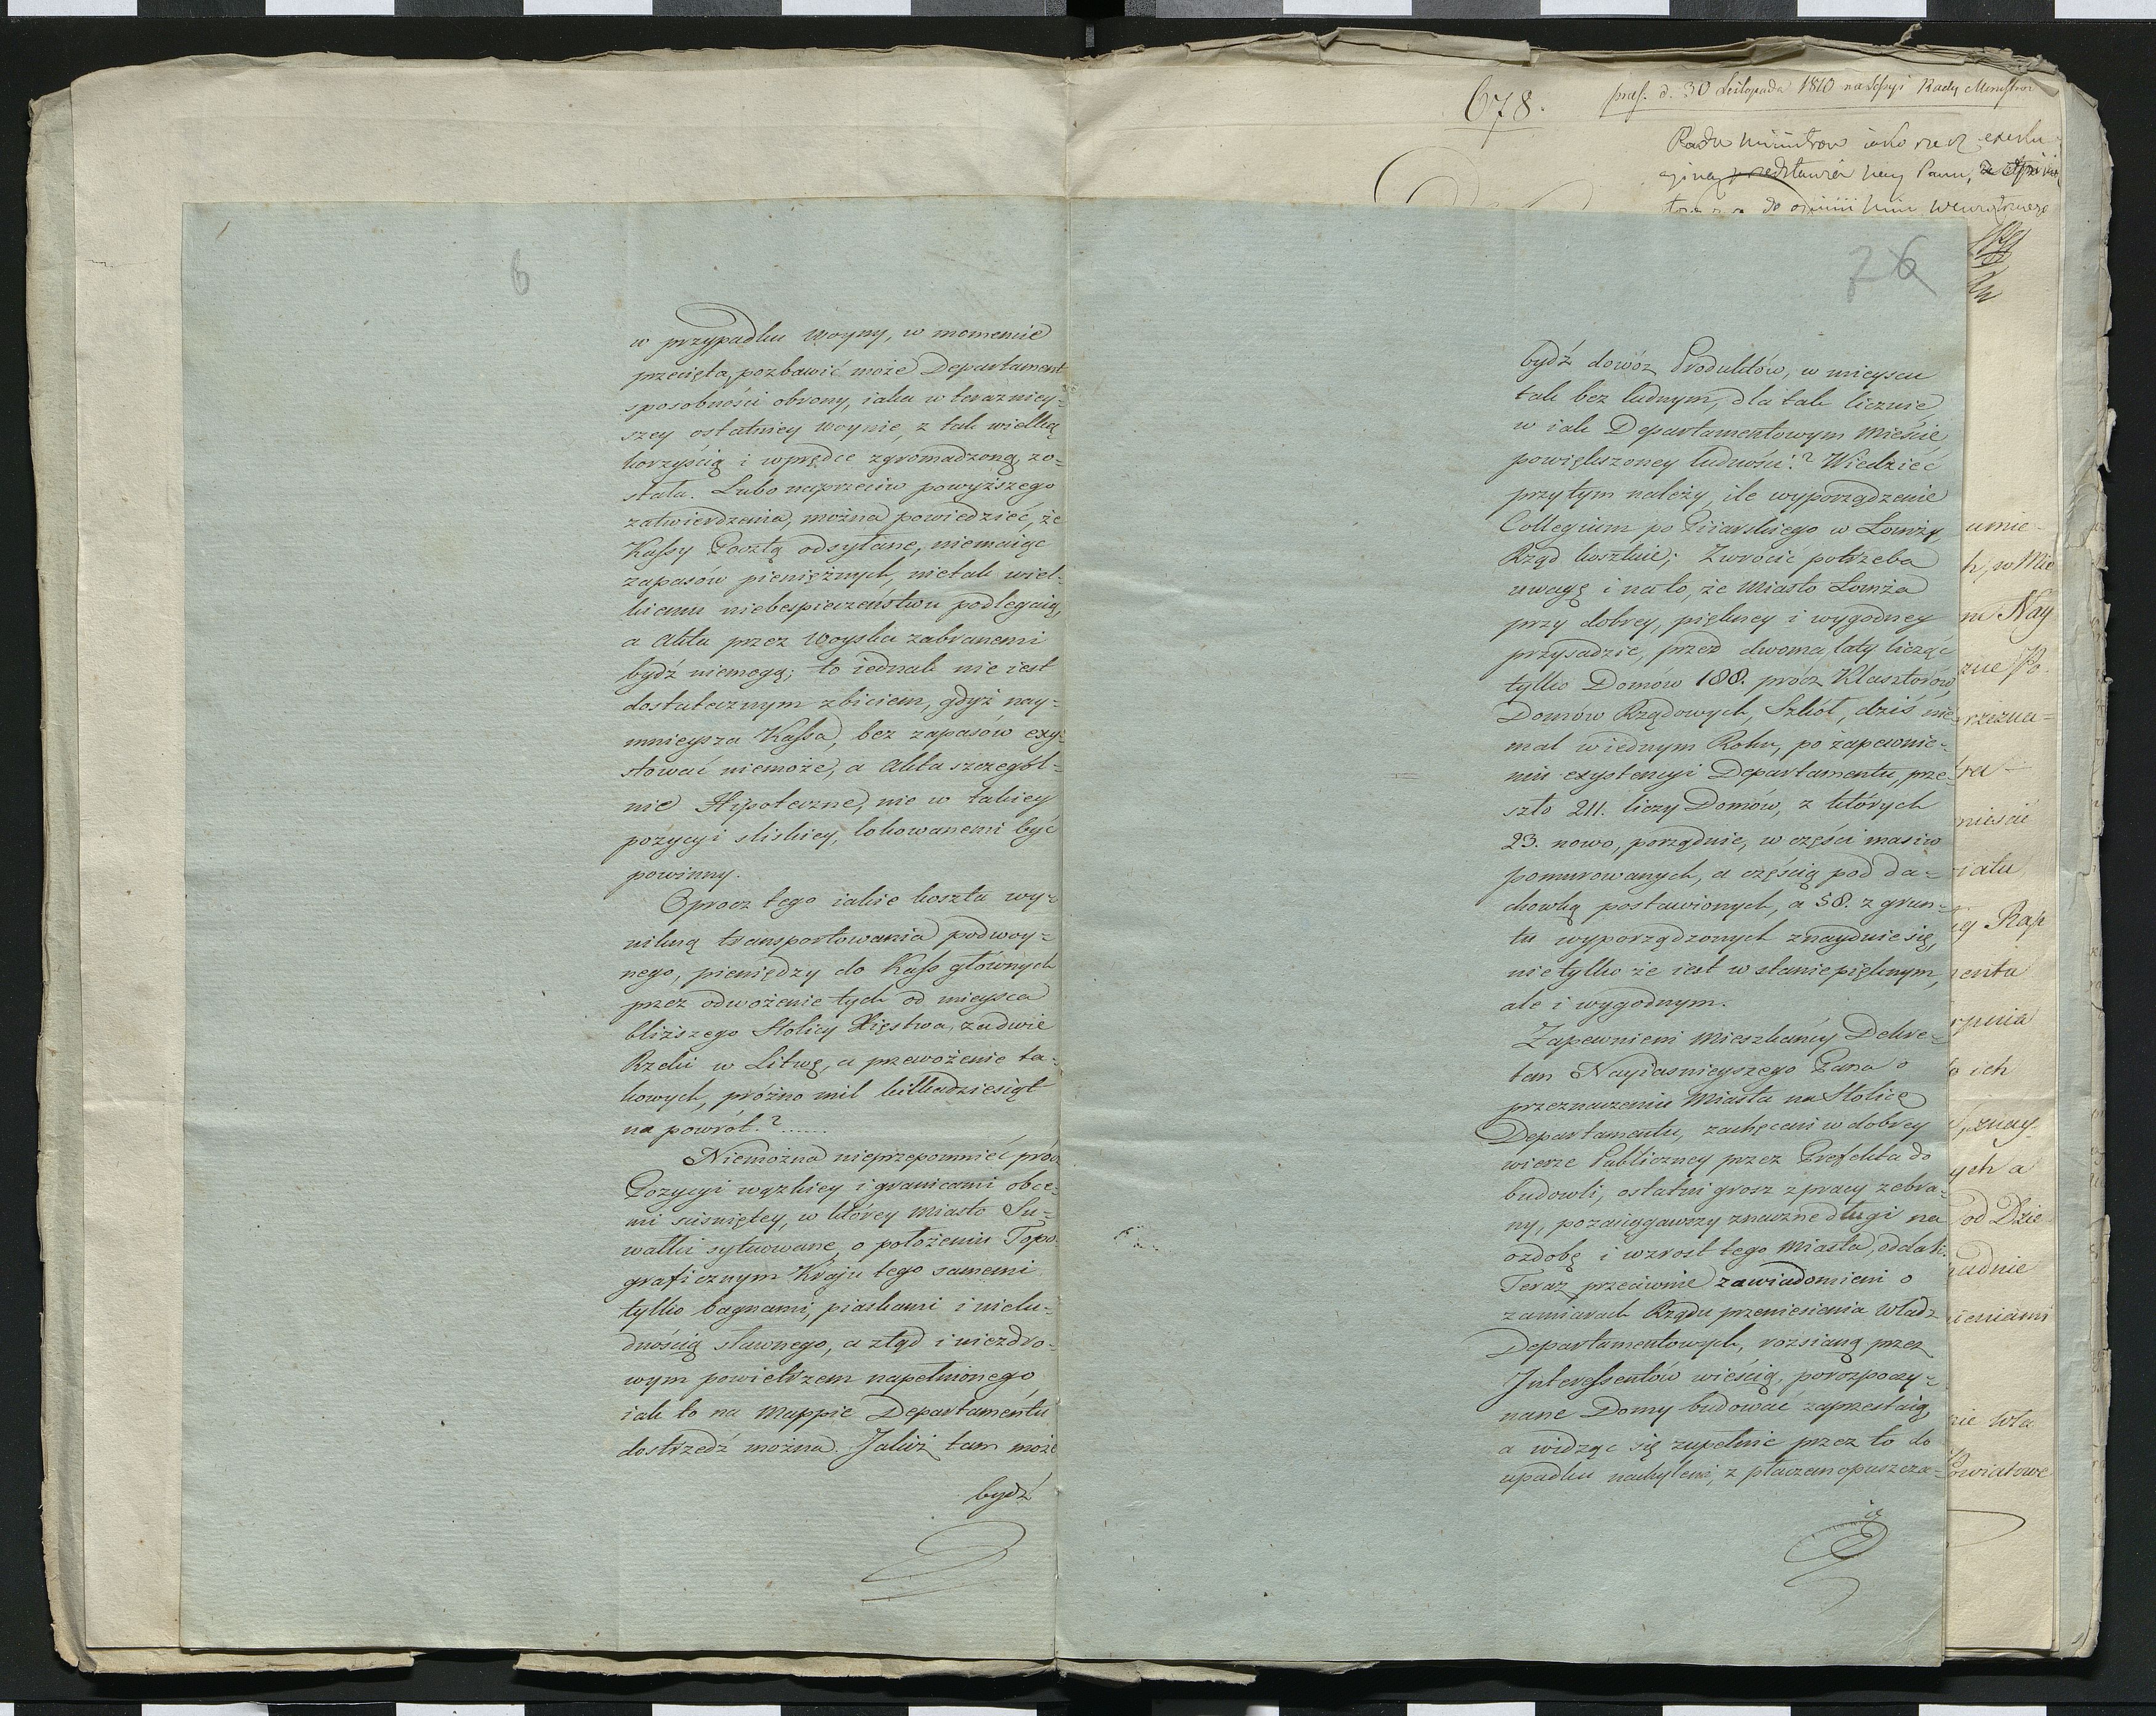 6
w przypadku woyny, w momencie
przecięta, pozbawić może Departament
sposobności obrony, iaka w terazniey=
szey ostatniey woynie, z tak wielką
korzyścią i wprędce zgromadzoną zo=
stała. Lubo naprzeciw powyższego
zatwierdzenia, można powiedzieć, że
Kassy Pocztą odsyłane, niemaiąc
zapasów pieniężnych, nietak wiel=
kiemu niebespieczeństwu podlegaią,
a Akta przez Woyska zabranemi
bydź niemogą; to iednak nie iest
dostatecznym zbiciem, gdyż nay=
mnieysza Kassa, bez zapasów exy=
stować niemoże, a Akta szczegól=
nie Hipoteczne, nie w takiey
pozycyi sliskiey, lokowanemi być
powinny.
Oprocz tego iakie koszta wy=
nikną transportowania podwoy=
nego, pieniędzy do Kass głównych
przez odwożenie tych od mieysca
bliższego Stolicy Xięstwa, za dwie
Rzeki w Litwę, a przewożenie ta=
kowych, próżno mil kilkadziesiąt
na powrót? ......
Niemożna nieprzepomnieć prócz
Pozycyi wązkiey i granicami obce=
mi sciśniętey, w którey Miasto Su=
wałki sytuowane, o położeniu Topo=
graficznym Kraju tego samemi
tylko bagnami, piaskami i nielu=
dnością sławnego, a ztąd i niezdro=
wym powietrzem napełnionego
iak to na Mappie Departamentu
dostrzedź można. Jakiż tam może
bydź
678.
præs. d. 30 Listopada 1810 na Sessyi Rady Ministrow
Rada Ministrow iako rzecz exeku
do opinii Min Wewnętrznego
7 6
bydź dowóz Produktów, w mieyscu
tak bez ludnym, dla tak licznie,
w iak Departamentowym Mieście,
powiększoney ludności? Wiedzieć
przytym należy, ile wyporządzenie
Collegium po Piiarskiego w Łomży,
Rząd kosztuie; Zwrócić potrzeba
uwagę i na to, że Miasto Łomża
przy dobrey, piękney i wygodney
przysadzie, przed dwoma laty licząc
tylko Domów 188. prócz Klasztorów,
Domów Rządowych, Szkół, dziś nie=
mal w iednym Roku, po zapewnie=
niu exystencyi Departamentu, prze=
szło 211. liczy Domów, z których
23. nowo, porządnie, w części masiw
pomurowanych, a częścią pod da=
chowką postawionych, a 58. z grun=
tu wyporządzonych znayduie się,
nietylko że iest w stanie pięknym,
ale i wygodnym.
Zapewnieni Mieszkańcy Dekre=
tem Nayiasnieyszego Pana o
przeznaczeniu Miasta na Stolicę
Departamentu, zachęceni w dobrey
wierze Publiczney przez Prefekta do
budowli, ostatni grosz z pracy zebra=
ny, pozaciągawszy znaczne długi na
ozdobę i wzrost tego Miasta, oddali.
Teraz przeciwnie zawiadomieni o
zamiarach Rządu przeniesienia Władz
Departamentowych, rozsianą przez
Interessentów wieścią, porozpoczy=
nane Domy budować zaprzestaią,
a widząc się zupełnie przez to do
upadku nachyleni, z płaczem opuszcza=
ią
umie=
h, w Mie
m Nay
rzezna=
tra
mieście
iatu,
menta
rpnia
ich
znay=
ych a
od Dzie
adnie
ieniami
nie Wła
Powiatowe